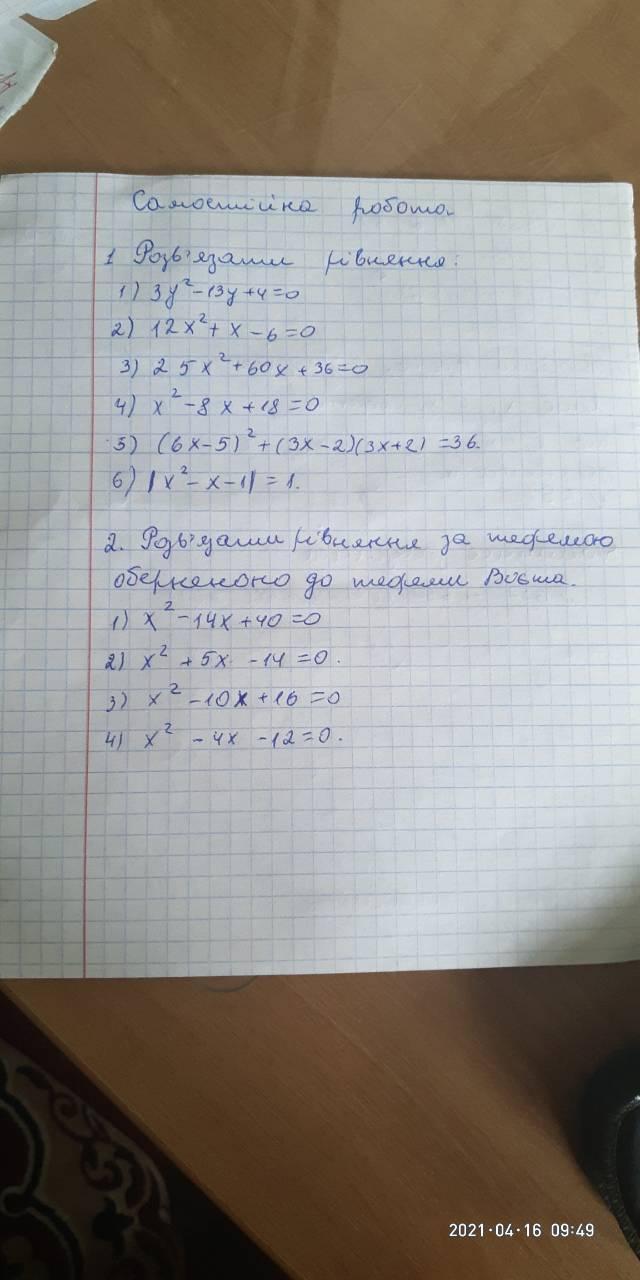 Самостійна робота.
1 Розв'язати рівняння:
1) 3y² - 13y + 4 = 0
2) 12x² + x - 6 = 0
3) 25x² + 60x + 36 = 0
4) x² - 8x + 18 = 0
5) (6x - 5)² + (3x - 2)(3x + 2) = 36.
6) |x² - x - 1| = 1.
2. Розв'язати рівняння за теоремою
оберненою до теореми Вієта.
1) x² - 14x + 40 = 0
2) x² + 5x - 14 = 0.
3) x² - 10x + 16 = 0
4) x² - 4x - 12 = 0.
2021·04·16 09:49